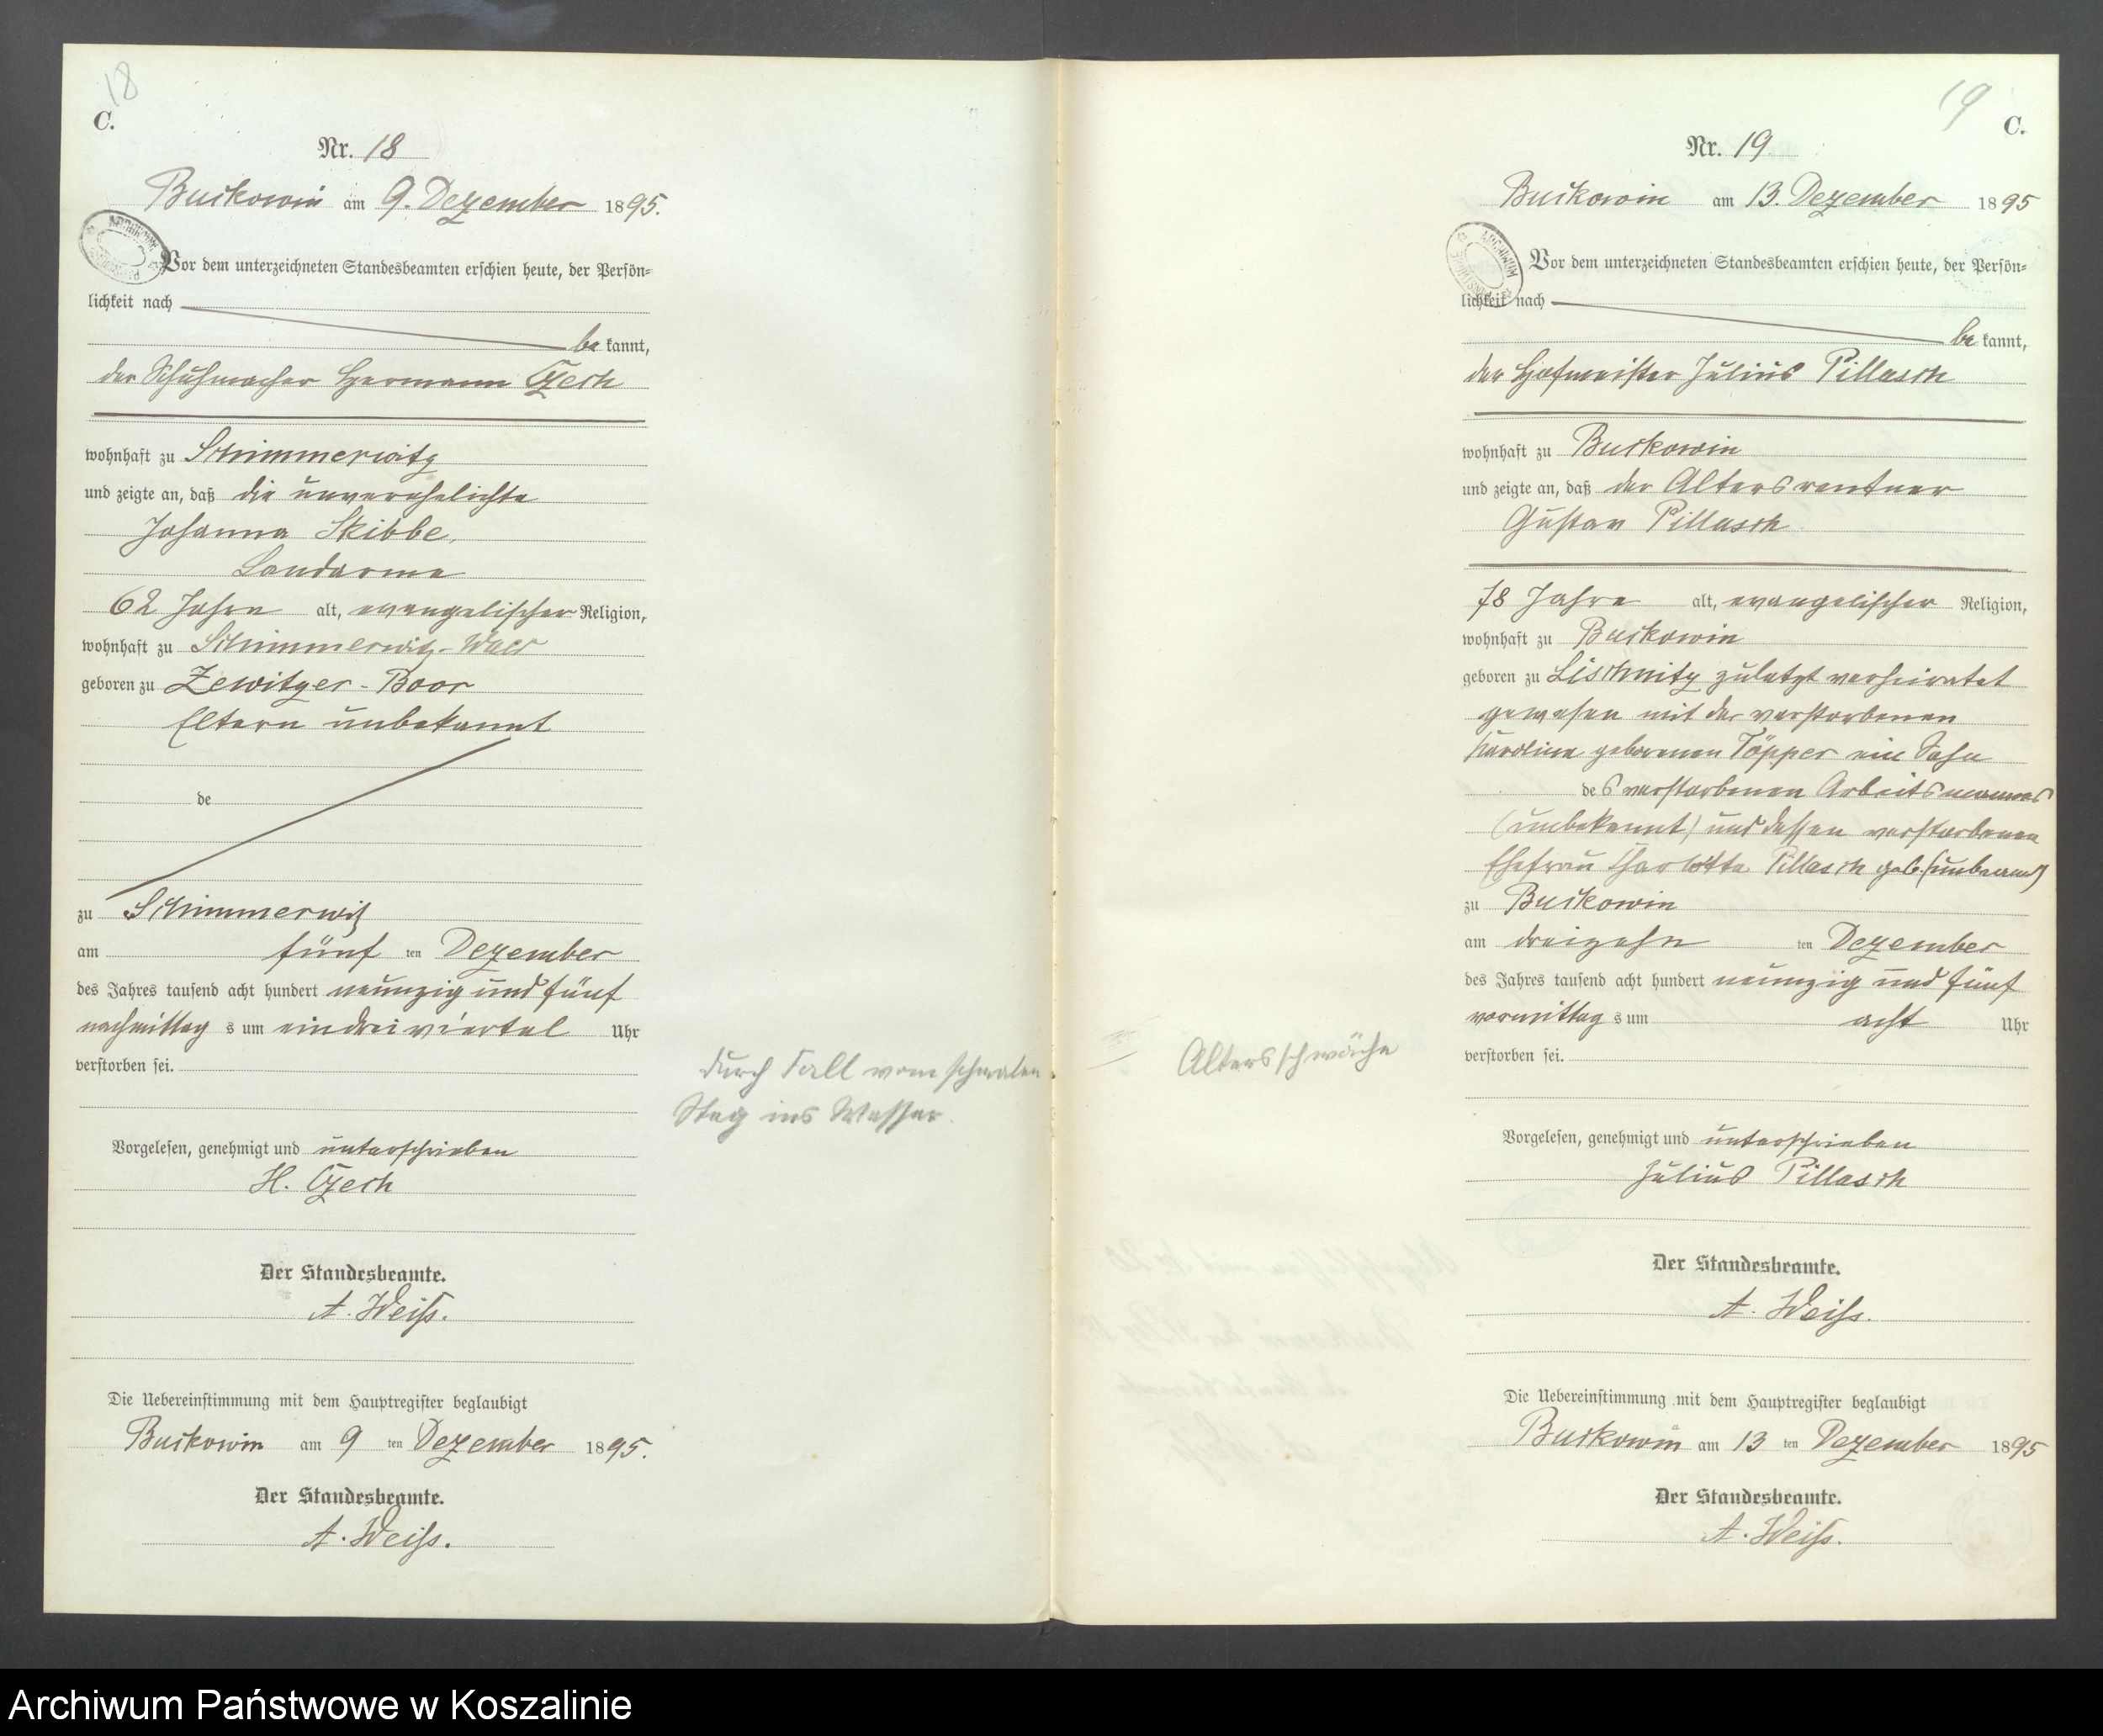 18
C.
Nr. 18
Buckowin am 9. Dezember 1895.
Vor dem unterzeichneten Standesbeamten erschien heute, der Persön=
lichkeit nach
be kannt,
der Schuhmacher Hermann Czech
wohnhaft zu Schimmerwitz
und zeigte an, daß die unverehelichte
Johanna Skibbe,
Landarme
62 Jahre alt, evangelischer Religion,
wohnhaft zu Schimmerwitz-Wald
geboren zu Zewitzer-Boor
Eltern unbekannt
de
zu Schimmerwitz
am fünf ten Dezember
des Jahres tausend acht hundert neunzig und fünf
nachmittag s um eindreiviertel Uhr
verstorben sei.
durch Fall vom schmalen
Steg ins Wasser.
Vorgelesen, genehmigt und unterschrieben
H. Czech
Der Standesbeamte.
A. Weiß.
Die Uebereinstimmung mit dem Hauptregister beglaubigt
Buckowin am 9 ten Dezember 1895.
Der Standesbeamte.
A. Weiß.
19
C.
Nr. 19
Buckowin am 13. Dezember 1895
Vor dem unterzeichneten Standesbeamten erschien heute, der Persön=
lichkeit nach
be kannt,
der Hofmeister Julius Pillasch
wohnhaft zu Buckowin
und zeigte an, daß der Altersrentner
Gustav Pillasch
78 Jahre alt, evangelischer Religion,
wohnhaft zu Buckowin
geboren zu Lischnitz zuletzt verheiratet
gewesen mit der verstorbenen
Karoline geborenen Töpper ein Sohn
des verstorbenen Arbeitsmannes
(unbekannt) und dessen verstorbenen
Ehefrau Charlotte Pillasch geb.
zu Buckowin
am dreizehn ten Dezember
des Jahres tausend acht hundert neunzig und fünf
vormittag s um acht Uhr
verstorben sei.
Altersschwäche
Vorgelesen, genehmigt und unterschrieben
Julius Pillasch
Der Standesbeamte.
A. Weiß.
Die Uebereinstimmung mit dem Hauptregister beglaubigt
Buckowin am 13 ten Dezember 1895
Der Standesbeamte.
A. Weiß.
Archiwum Państwowe w Koszalinie